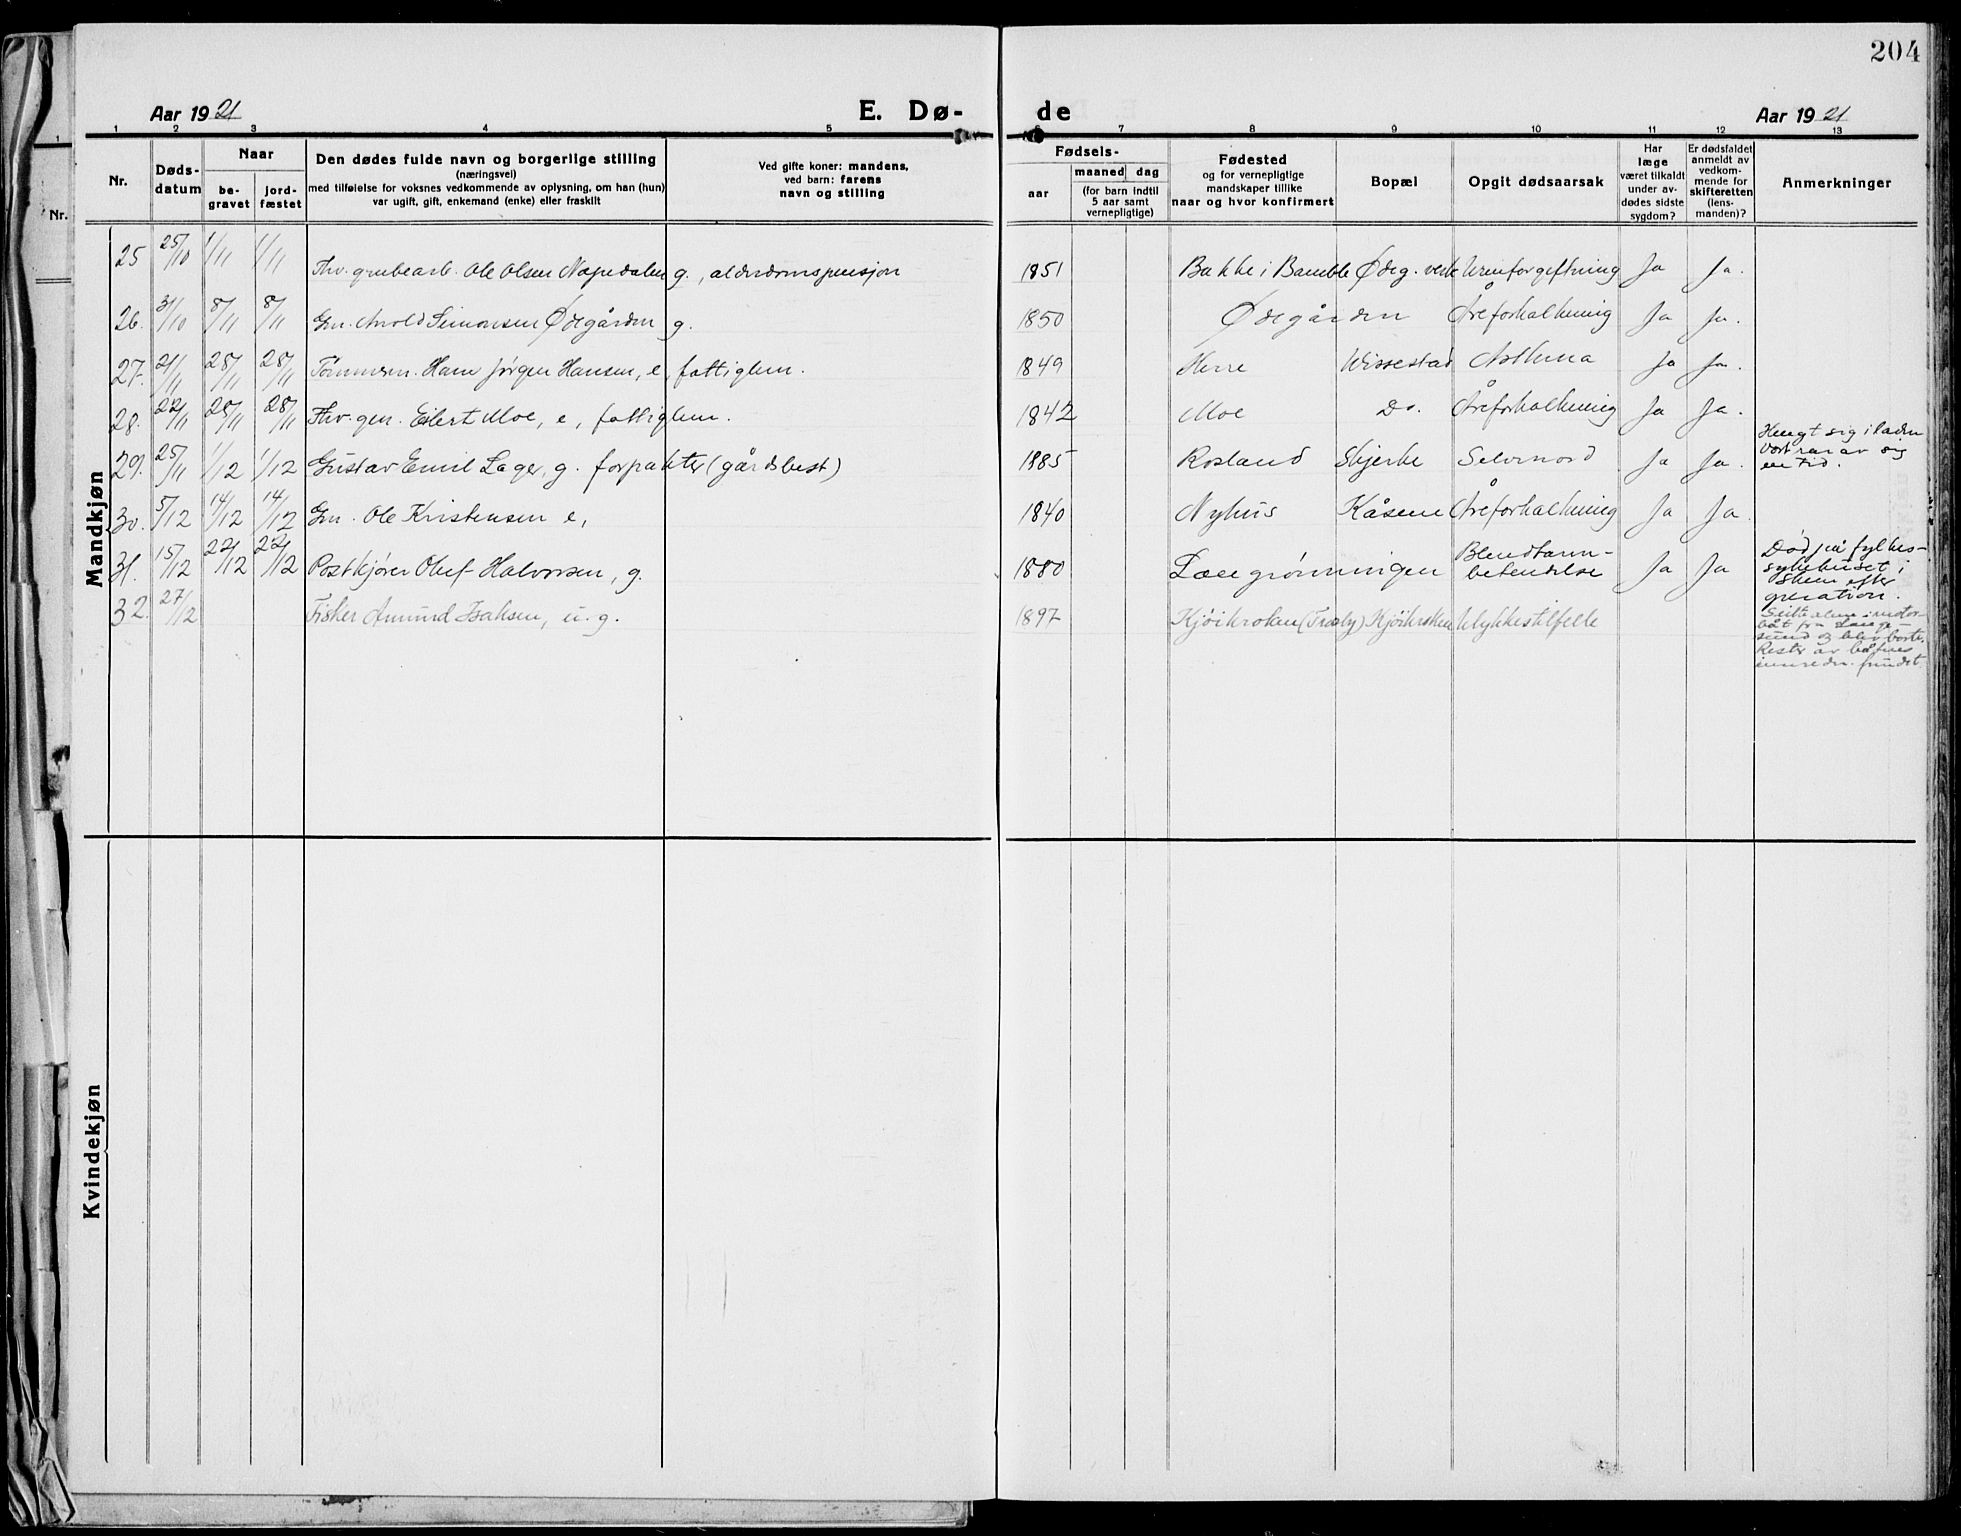 204
Aar 1921 E. Dø- de Aar 1921
1 2 3 4 5 6 7 8 9 10 11 12 13
Nr. Døds-datum Naar be-gravet jord-fæstet Den dødes fulde navn og borgerlige stilling (næringsvei) med tilføielse for voksnes vedkommende av oplysning, om han (hun) var ugift, gift, enkemand (enke) eller fraskilt Ved gifte koner: mandens, ved barn: farens navn og stilling Fødsels- aar maaned dag (for barn indtil 5 aar samt vernepligtige) Fødested og for vernepligtige mandskaper tillike naar og hvor konfirmert Bopæl Opgit dødsaarsak Har læge været tilkaldt under av-dødes sidste sygdom? Er dødsfaldet anmeldt av vedkom-mende for skifteretten (lens-manden)? Anmerkninger
Mandkjøn
25 25/10 1/11 1/11 Fhv. grubearb. Ole Olsen Nægsdalen g., alderdomspensjon 1851 Bakke i Bamble Ødeg. verk Urinforgiftning Ja Ja.
26. 31/10 8/11 8/11 Gm. Arold Simonsen Ødegården g. 1850 Ødegården Åreforkalkning Ja Ja.
27. 21/11 28/11 28/11 Tømmerm. Hans Jørgen Hansen, e, fattiglem. 1849 Herre Wissestad Asthma Ja Ja.
28. 22/11 28/11 28/11 Fhv. gm. Eilert Moe, e, fattiglem. 1842 Moe Do. Åreforkalkning Ja Ja.
29. 25/11 1/12 1/12 Gustav Emil Lager, g. forpakter (gårdsbest) 1885 Rosland Skjerke Selvmord Ja Ja. Hengt sig i laden Vort rar av sig en tid.
30. 5/12 14/12 14/12 Gm. Ole Kristensen e, 1840 Nyhus Kåsene Åreforkalkning Ja Ja.
31. 15/12 22/12 22/12 Postkjører Oluf Halvorsen, g. 1880 Langrønningen Blindtarm-betendelse Ja Ja Død på fylkes-sykehuset i Skien efter operation.
32. 27/12 Fisker Amund Isaksen, u.g. 1897 Kjøikroken (Trosby) Kjøikroken Ulykkestilfelle Seilte alene i motor-båt fra Lange-sund og blev borte. Rester av båtens innredn. fundet.
Kvindekjøn
1
Nr.